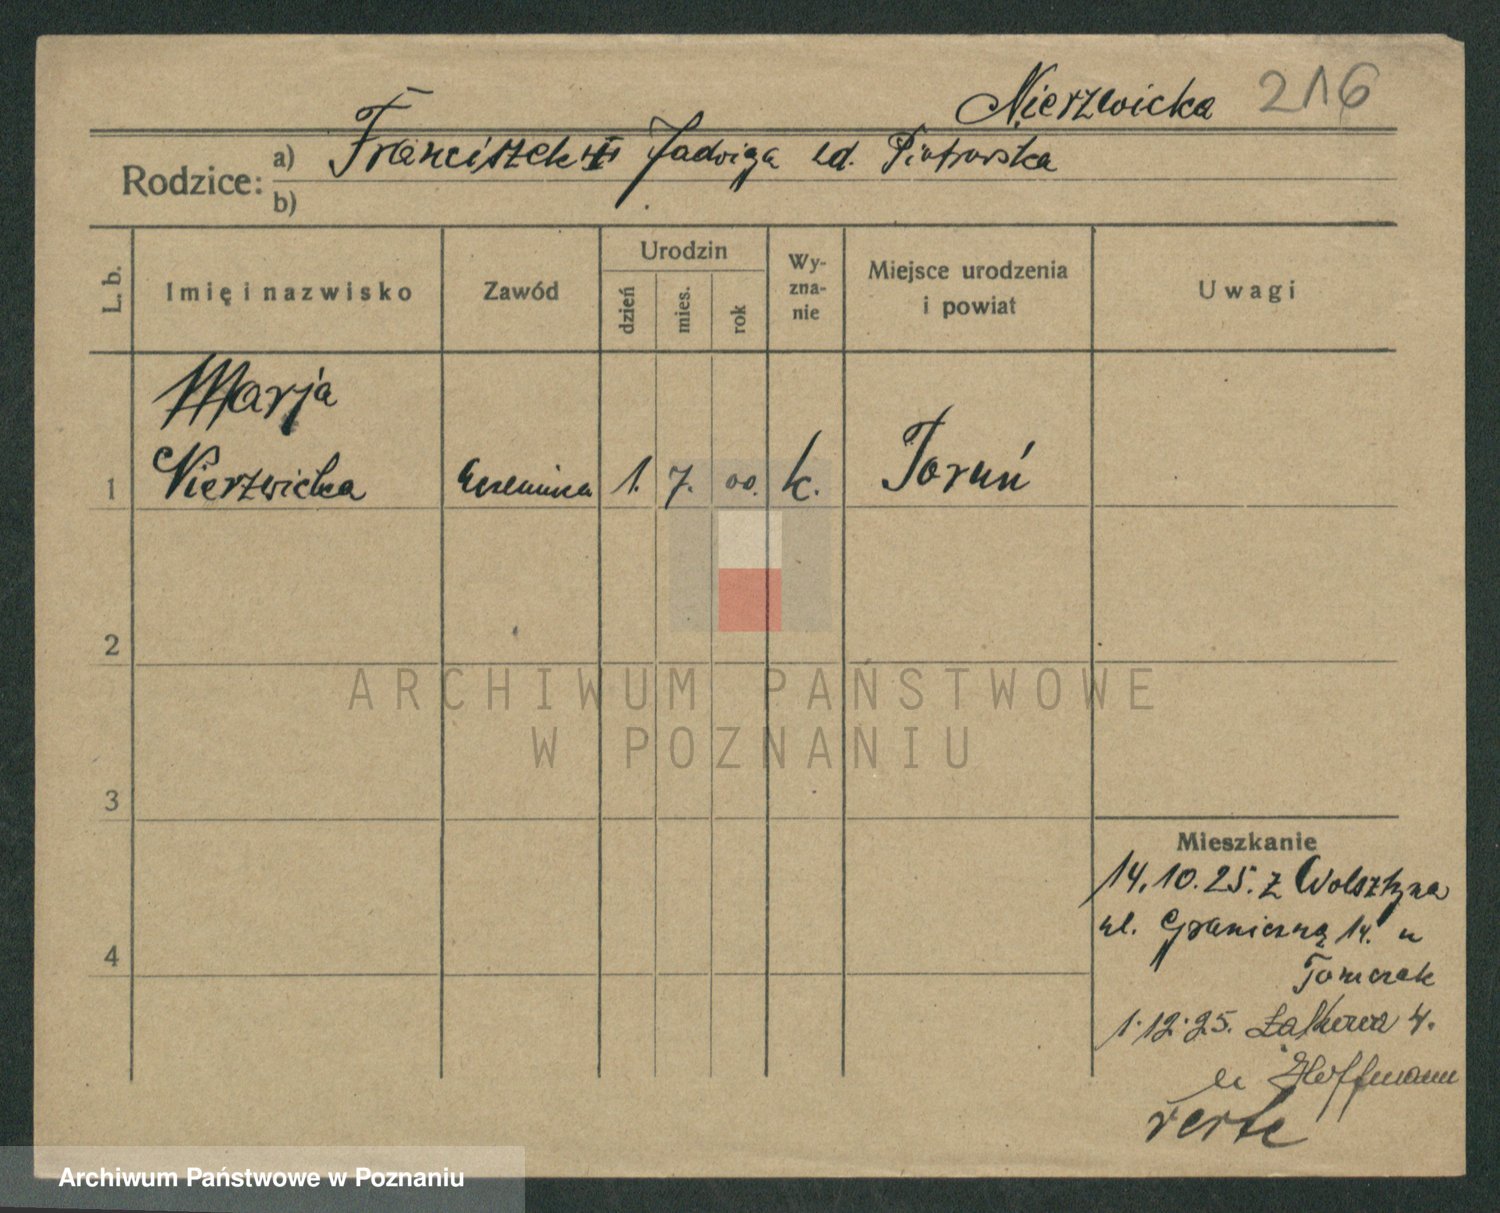 Nierzwicka 216
Rodzice: a) Franciszek Jadwiga zd. Piotrowska
b)
L. b.
Imię i nazwisko
Zawód
Urodzin
dzień
mies.
rok
Wy-
zna-
nie
Miejsce urodzenia
i powiat
Uwagi
Marja
1 Nierzwicka 1. 7. 00. k. Toruń
2
ARCHIWUM PAŃSTWOWE
W POZNANIU
3
Mieszkanie
14.10.25. z Wolsztyna
ul. Graniczna 14. u
Tomczak
4
1.12.25. 4.
u Hoffmann
verte
Archiwum Państwowe w Poznaniu